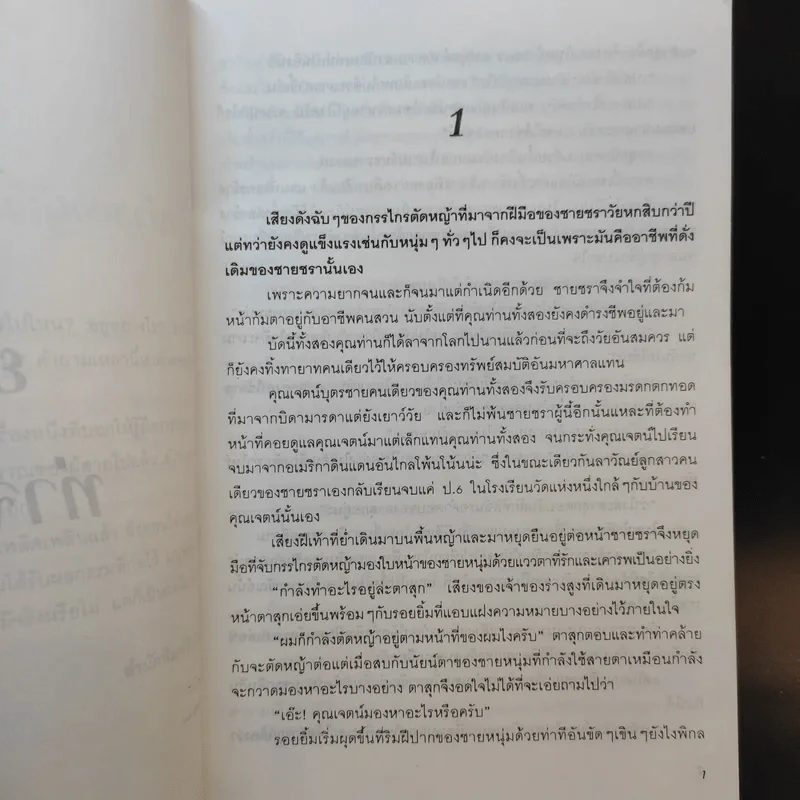 1
เสียงดังฉับๆของกรรไกรตัดหญ้าที่มาจากฝีมือของชายชราวัยหกสิบกว่าปี
แต่ทว่ายังคงดูแข็งแรงเช่นกับหนุ่มๆ ทั่วๆไป ก็คงจะเป็นเพราะมันคืออาชีพที่ดั่ง
เดิมของชายชรานั้นเอง
เพราะความยากจนและก็จนมาแต่กำเนิดอีกด้วย ชายชราจึงจำใจที่ต้องก้ม
หน้าก้มตาอยู่กับอาชีพคนสวน นับตั้งแต่ที่คุณท่านทั้งสองยังคงดำรงชีพอยู่และมา
บัดนี้ทั้งสองคุณท่านก็ได้ลาจากโลกไปนานแล้วก่อนที่จะถึงวัยอันสมควร แต่
ก็ยังคงทิ้งทายาทคนเดียวไว้ให้ครอบครองทรัพย์สมบัติอันมหาศาลแทน
คุณเจตน์บุตรชายคนเดียวของคุณท่านทั้งสองจึงรับครอบครองมรดกตกทอด
ที่มาจากบิดามารดาแต่ยังเยาว์วัย และก็ไม่พ้นชายชราผู้นี้อีกนั้นแหละที่ต้องทำ
หน้าที่คอยดูแลคุณเจตน์มาแต่เล็กแทนคุณท่านทั้งสอง จนกระทั่งคุณเจตน์ไปเรียน
จบมาจากอเมริกาดินแดนอันไกลโพ้นโน้นน่ะ ซึ่งในขณะเดียวกันลาวัณย์ลูกสาวคน
เดียวของชายชราเองกลับเรียนจบแค่ ป.6 ในโรงเรียนวัดแห่งหนึ่งใกล้ๆกับบ้านของ
คุณเจตน์นั้นเอง
เสียงฝีเท้าที่ย่ำเดินมาบนพื้นหญ้าและมาหยุดยืนอยู่ต่อหน้าชายชราจึงหยุด
มือที่จับกรรไกรตัดหญ้ามองใบหน้าของชายหนุ่มด้วยแววตาที่รักและเคารพเป็นอย่างยิ่ง
“กำลังทำอะไรอยู่ล่ะตาสุก” เสียงของเจ้าของร่างสูงที่เดินมาหยุดอยู่ตรง
หน้าตาสุกเอ่ยขึ้นพร้อมๆกับรอยยิ้มที่แอบแฝงความหมายบางอย่างไว้ภายในใจ
“ผมก็กำลังตัดหญ้าอยู่ตามหน้าที่ของผมไงครับ” ตาสุกตอบและทำท่าคล้าย
กับจะตัดหญ้าต่อแต่เมื่อสบกับนัยน์ตาของชายหนุ่มที่กำลังใช้สายตาเหมือนกำลัง
จะกวาดมองหาอะไรบางอย่าง ตาสุกจึงอดใจไม่ได้ที่จะเอ่ยถามไปว่า
“เอ๊ะ! คุณเจตน์มองหาอะไรหรือครับ”
รอยยิ้มเริ่มผุดขึ้นที่ริมฝีปากของชายหนุ่มด้วยท่าทีอันขัดๆเขินๆยังไงพิกล
1